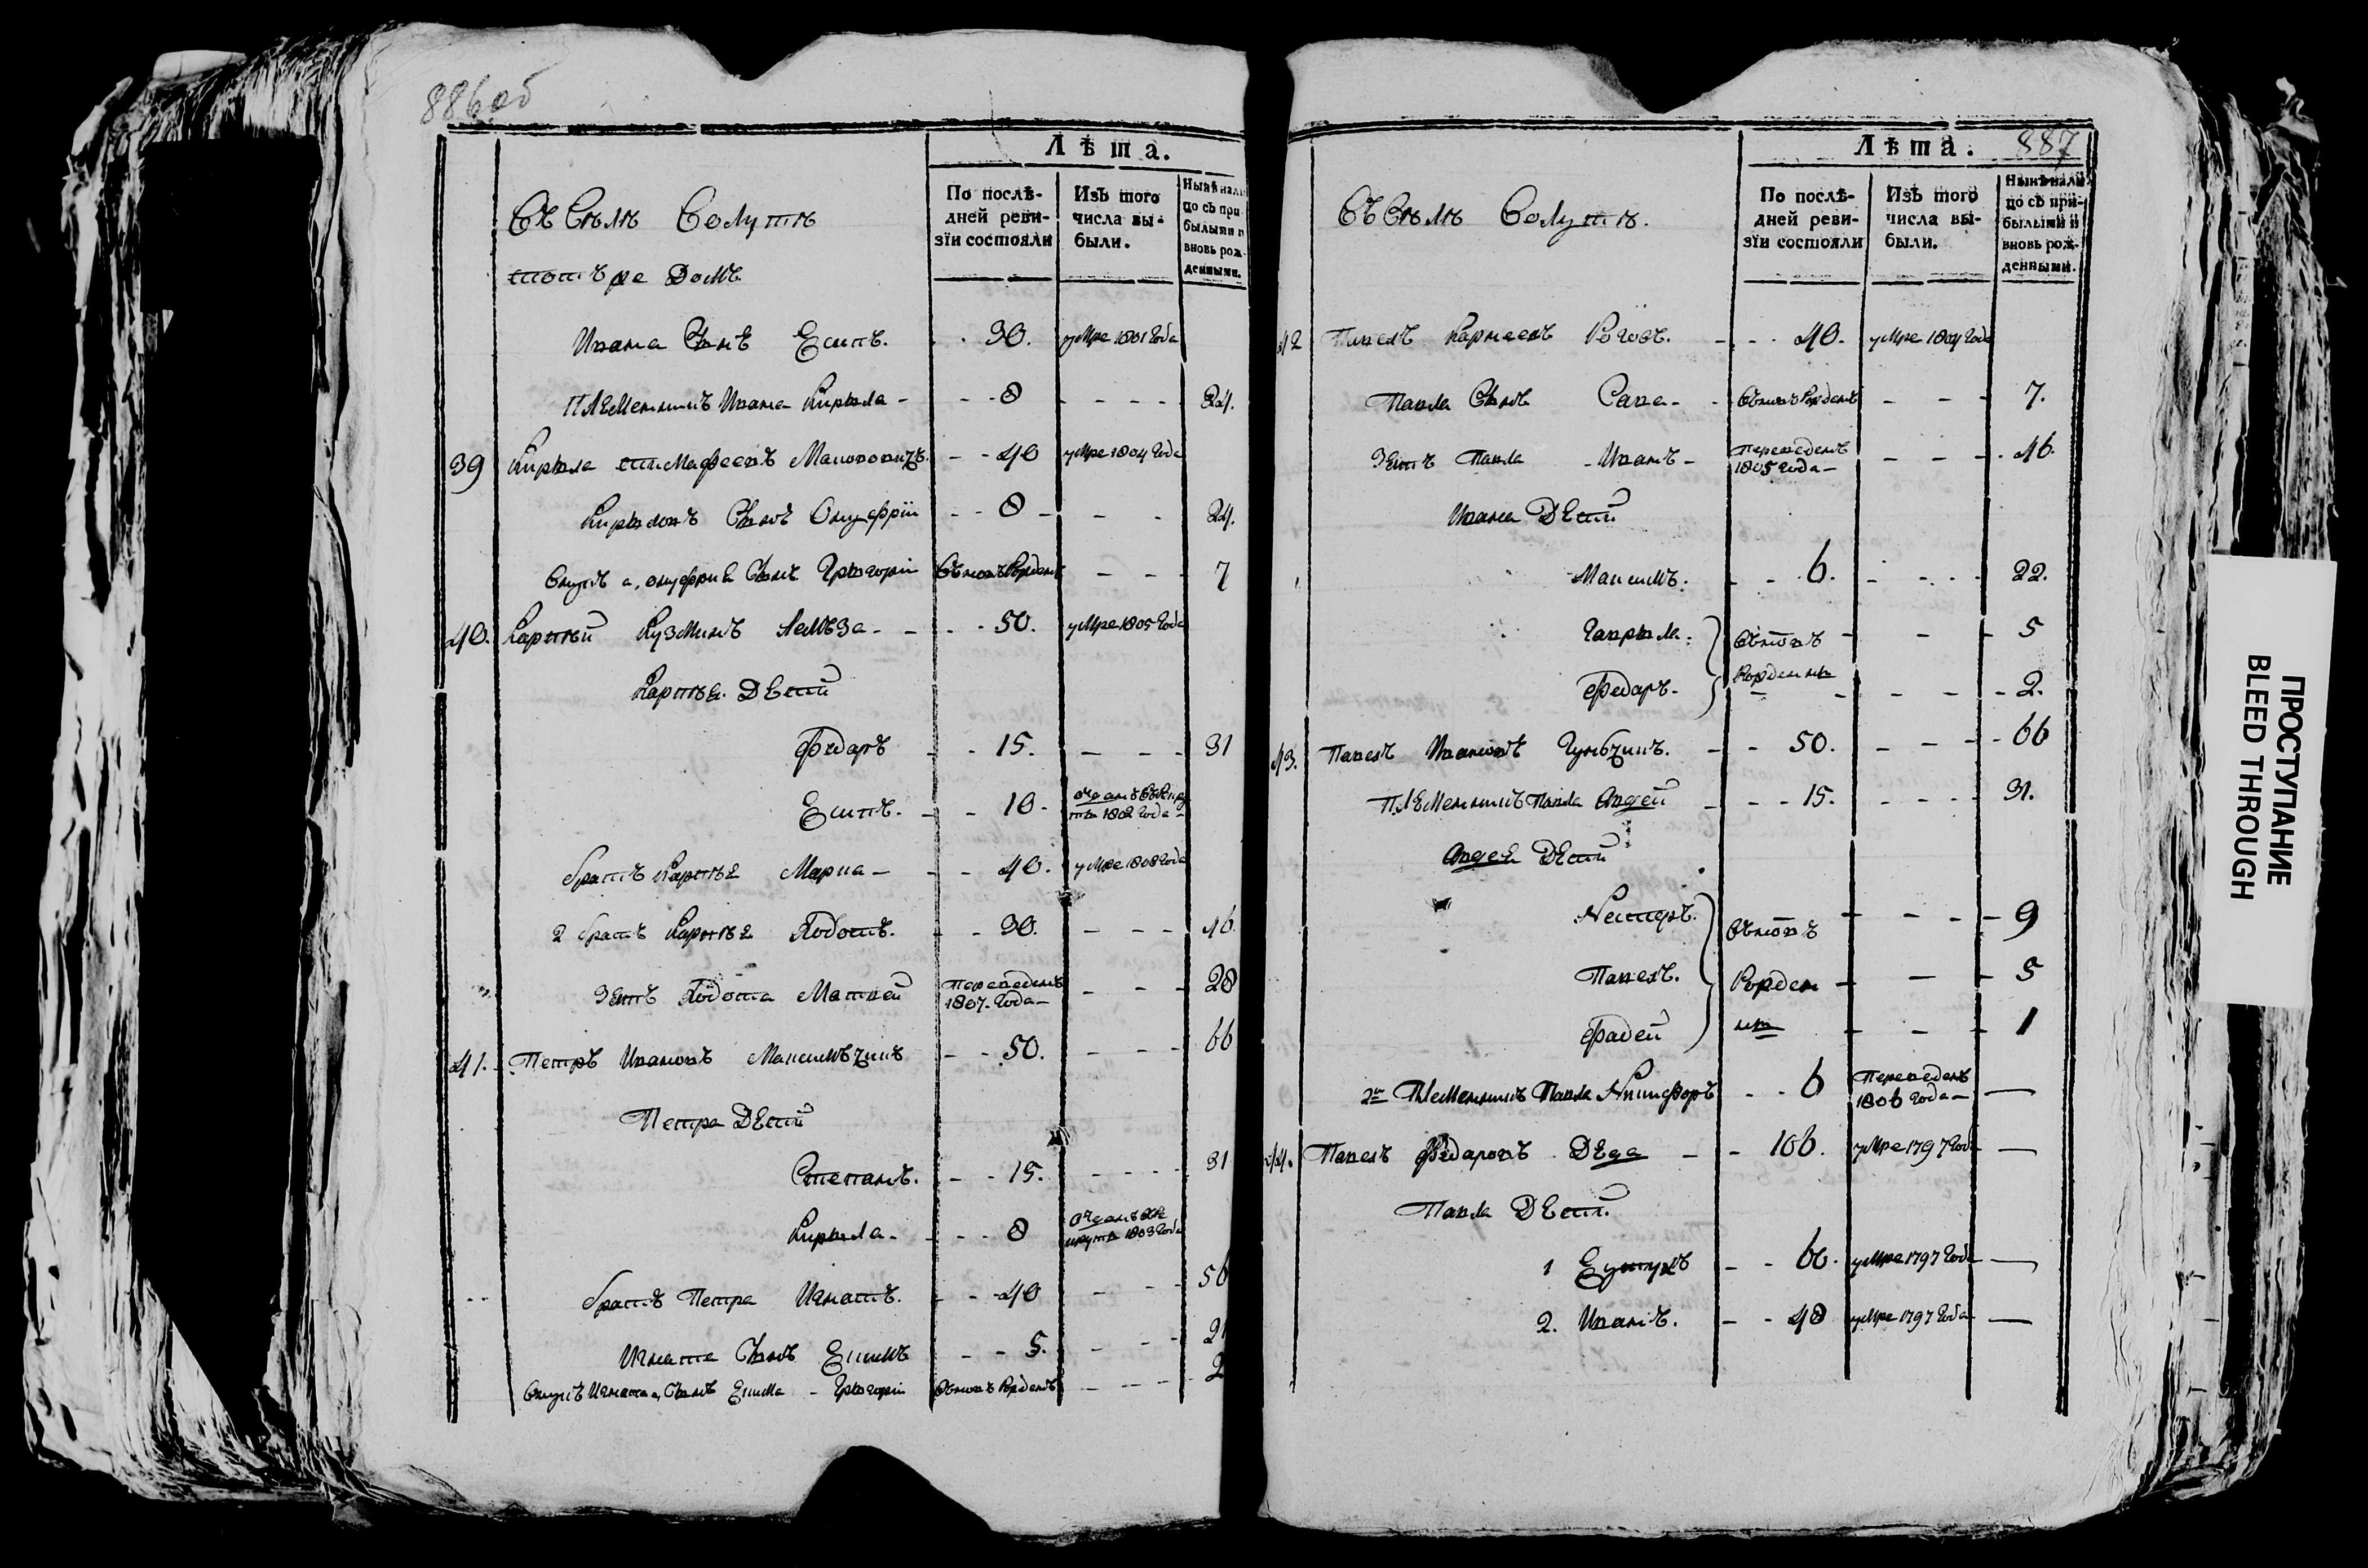 886об
Лѣта.
По послѣ-
дней реви-
зїи состояли
Изъ того
числа вы-
были.
Нынѣ нали
цо съ при
былыми и
вновь рож
денными.
Въ Селѣ Солутѣ
тотъ же Домъ
Ивана Сынъ Есипъ. 30. умре 1801 Года
Племенникъ Ивана Кирыла 8 24.
39 Кирыла тимафеевъ 40 умре 1804 Года
Кирыловъ Сынъ Онуфрїи 8 24.
Внукъ а, онуфрия Сынъ Грыгорїи Вновь Рожденъ 7
40. Карпѣй Кузминъ 50. умре 1805 Года
Карпѣя Дѣти
Фядаръ 15. 31
Есипъ. 10. отданъ в рекру
ты 1802 Года
братъ Карпѣя Марка 40. умре 1808 Года
2 братъ Карпѣя Хвдотъ. 30. 46
Зять Хвдота Матвей Переведенъ
1807. Года 28
41. Петръ Ивановъ Максимъчикъ 50. 66
Петра Дѣти
Степанъ. 15. 31
Кирыла 8 отданъ в ре
круты 1803 Года
братъ Петра Игнатъ. 40 56
Игната Сынъ Екимъ 5. 21
Внукъ Игната, Сынъ Екима Грыгорїи Вновь Рожденъ 2
887
Лѣта.
По послѣ-
дней реви-
зїи состояли
Изъ того
числа вы-
были.
Нынѣ нали
цо съ при-
былыми и
вновь рож-
денными.
Въ Селѣ Солутѣ.
42 Павелъ Карнеевъ Роговъ. 40. умре 1804 Года
Павла Сынъ Сава Вновь Рожденъ 7.
Зять Павла Иванъ Переведенъ
1805 Года 46.
Ивана Дѣти
Максимъ. 6. 22.
Гаврыла. Вновь 5
Фядаръ. Рожденны 2.
43. Павелъ Ивановъ 50. 66
Племенникъ Павла Авдей 15. 31.
Авдея Дѣти
Нестеръ. Вновь 9
Павелъ. Рожден 5
Фадей ны 1
2й Племенникъ Павла Никифоръ 6 Переведенъ
1806 Года
44. Павелъ Фядаровъ Дѣда 106. умре 1797 Года
Павла Дѣти.
1 Евтухъ 60. умре 1797 Года
2. Иванъ. 48 умре 1797 Года
ПРОСТУПАНИЕ
BLEED THROUGH